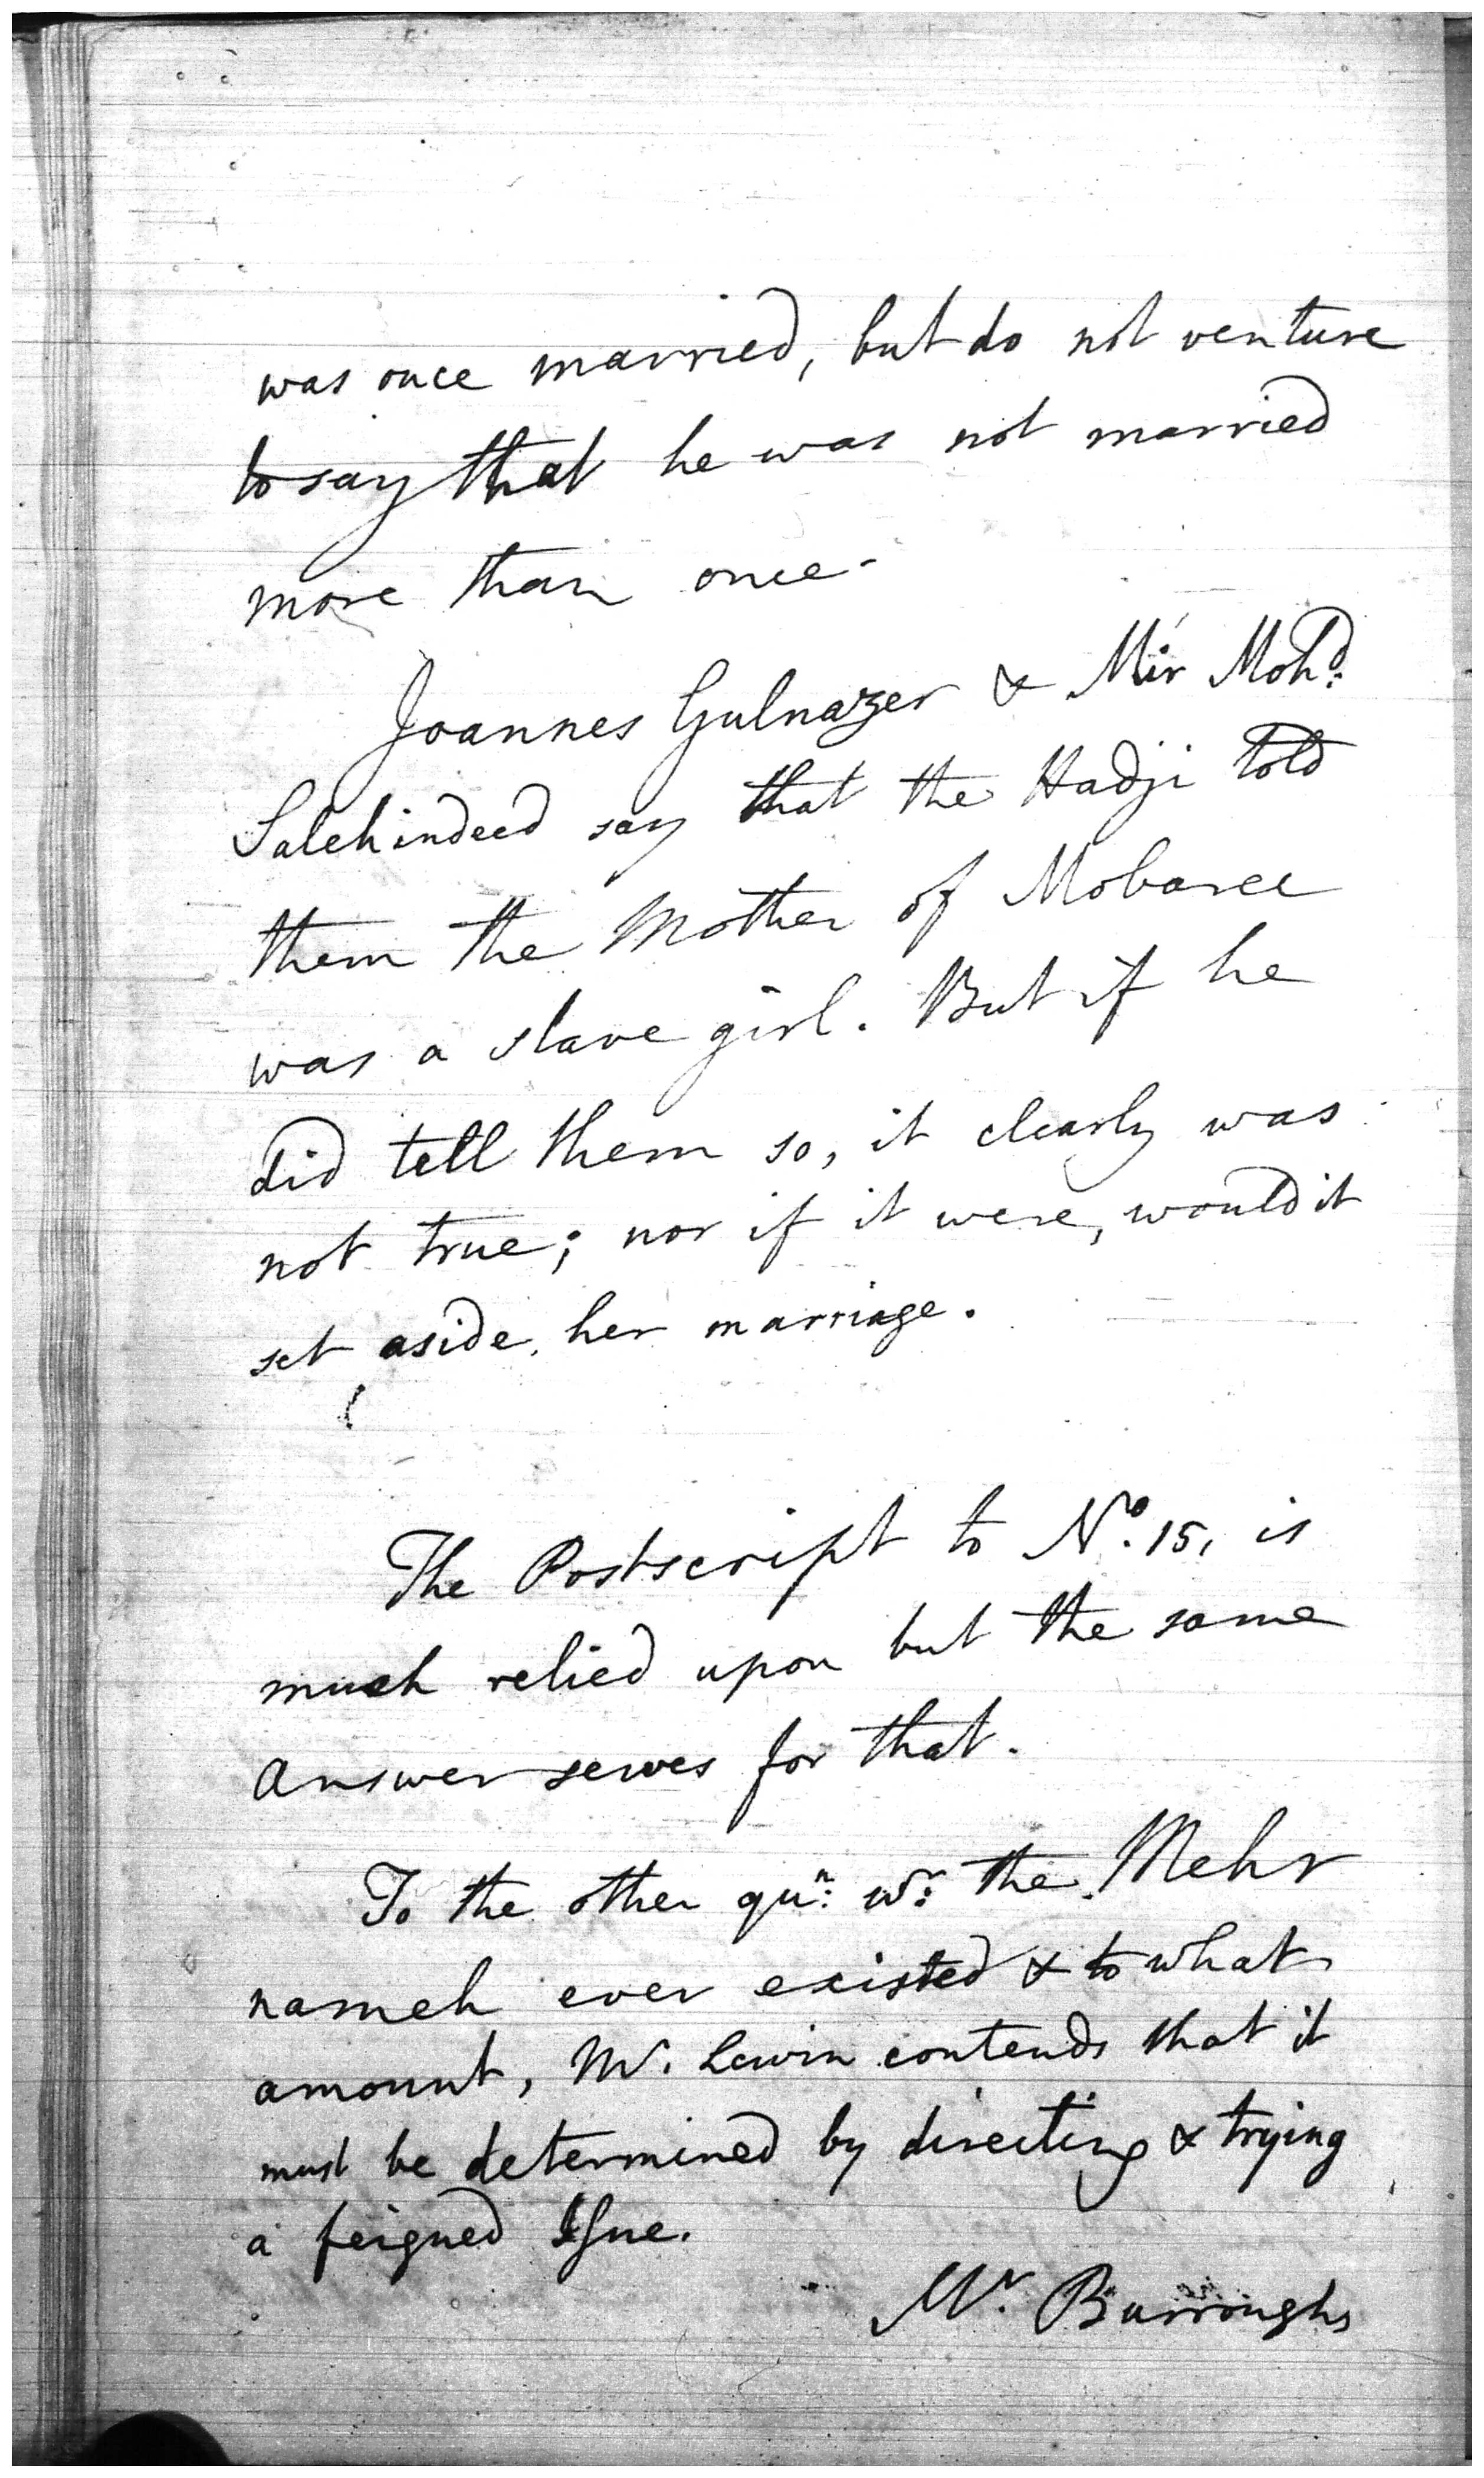 was once married, but do not venture
to say that he was not married
more than once.
Joannes Gulnazer & Mir Mohd:
Saleh indeed say that the Hadji told
them the Mother of Mobaree
was a slave girl. But if he
did tell them so, it clearly was
not true; nor if it were, would it
set aside, her marriage.
The Postscript to No. 15, is
much relied upon but the same
answer serves for that.
To the other qun: wr: the Mehr
nameh ever existed & to what
amount, Mr. Lewin contends that it
must be determined by directing & trying
a feigned Issue.
Mr. Burroughs